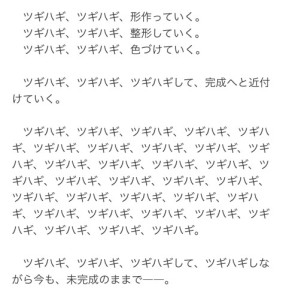 ツギハギ、ツギハギ、形作っていく。
　ツギハギ、ツギハギ、整形していく。
　ツギハギ、ツギハギ、色づけていく。

　ツギハギ、ツギハギ、ツギハギして、完成へと近付
けていく。

　ツギハギ、ツギハギ、ツギハギ、ツギハギ、ツギハ
ギ、ツギハギ、ツギハギ、ツギハギ、ツギハギ、ツギ
ハギ、ツギハギ、ツギハギ、ツギハギ、ツギハギ、ツ
ギハギ、ツギハギ、ツギハギ、ツギハギ、ツギハギ、
ツギハギ、ツギハギ、ツギハギ、ツギハギ、ツギハ
ギ、ツギハギ、ツギハギ、ツギハギ、ツギハギ、ツギ
ハギ、ツギハギ、ツギハギ、ツギハギ。

　ツギハギ、ツギハギ、ツギハギして、ツギハギしな
がら今も、未完成のままで――。